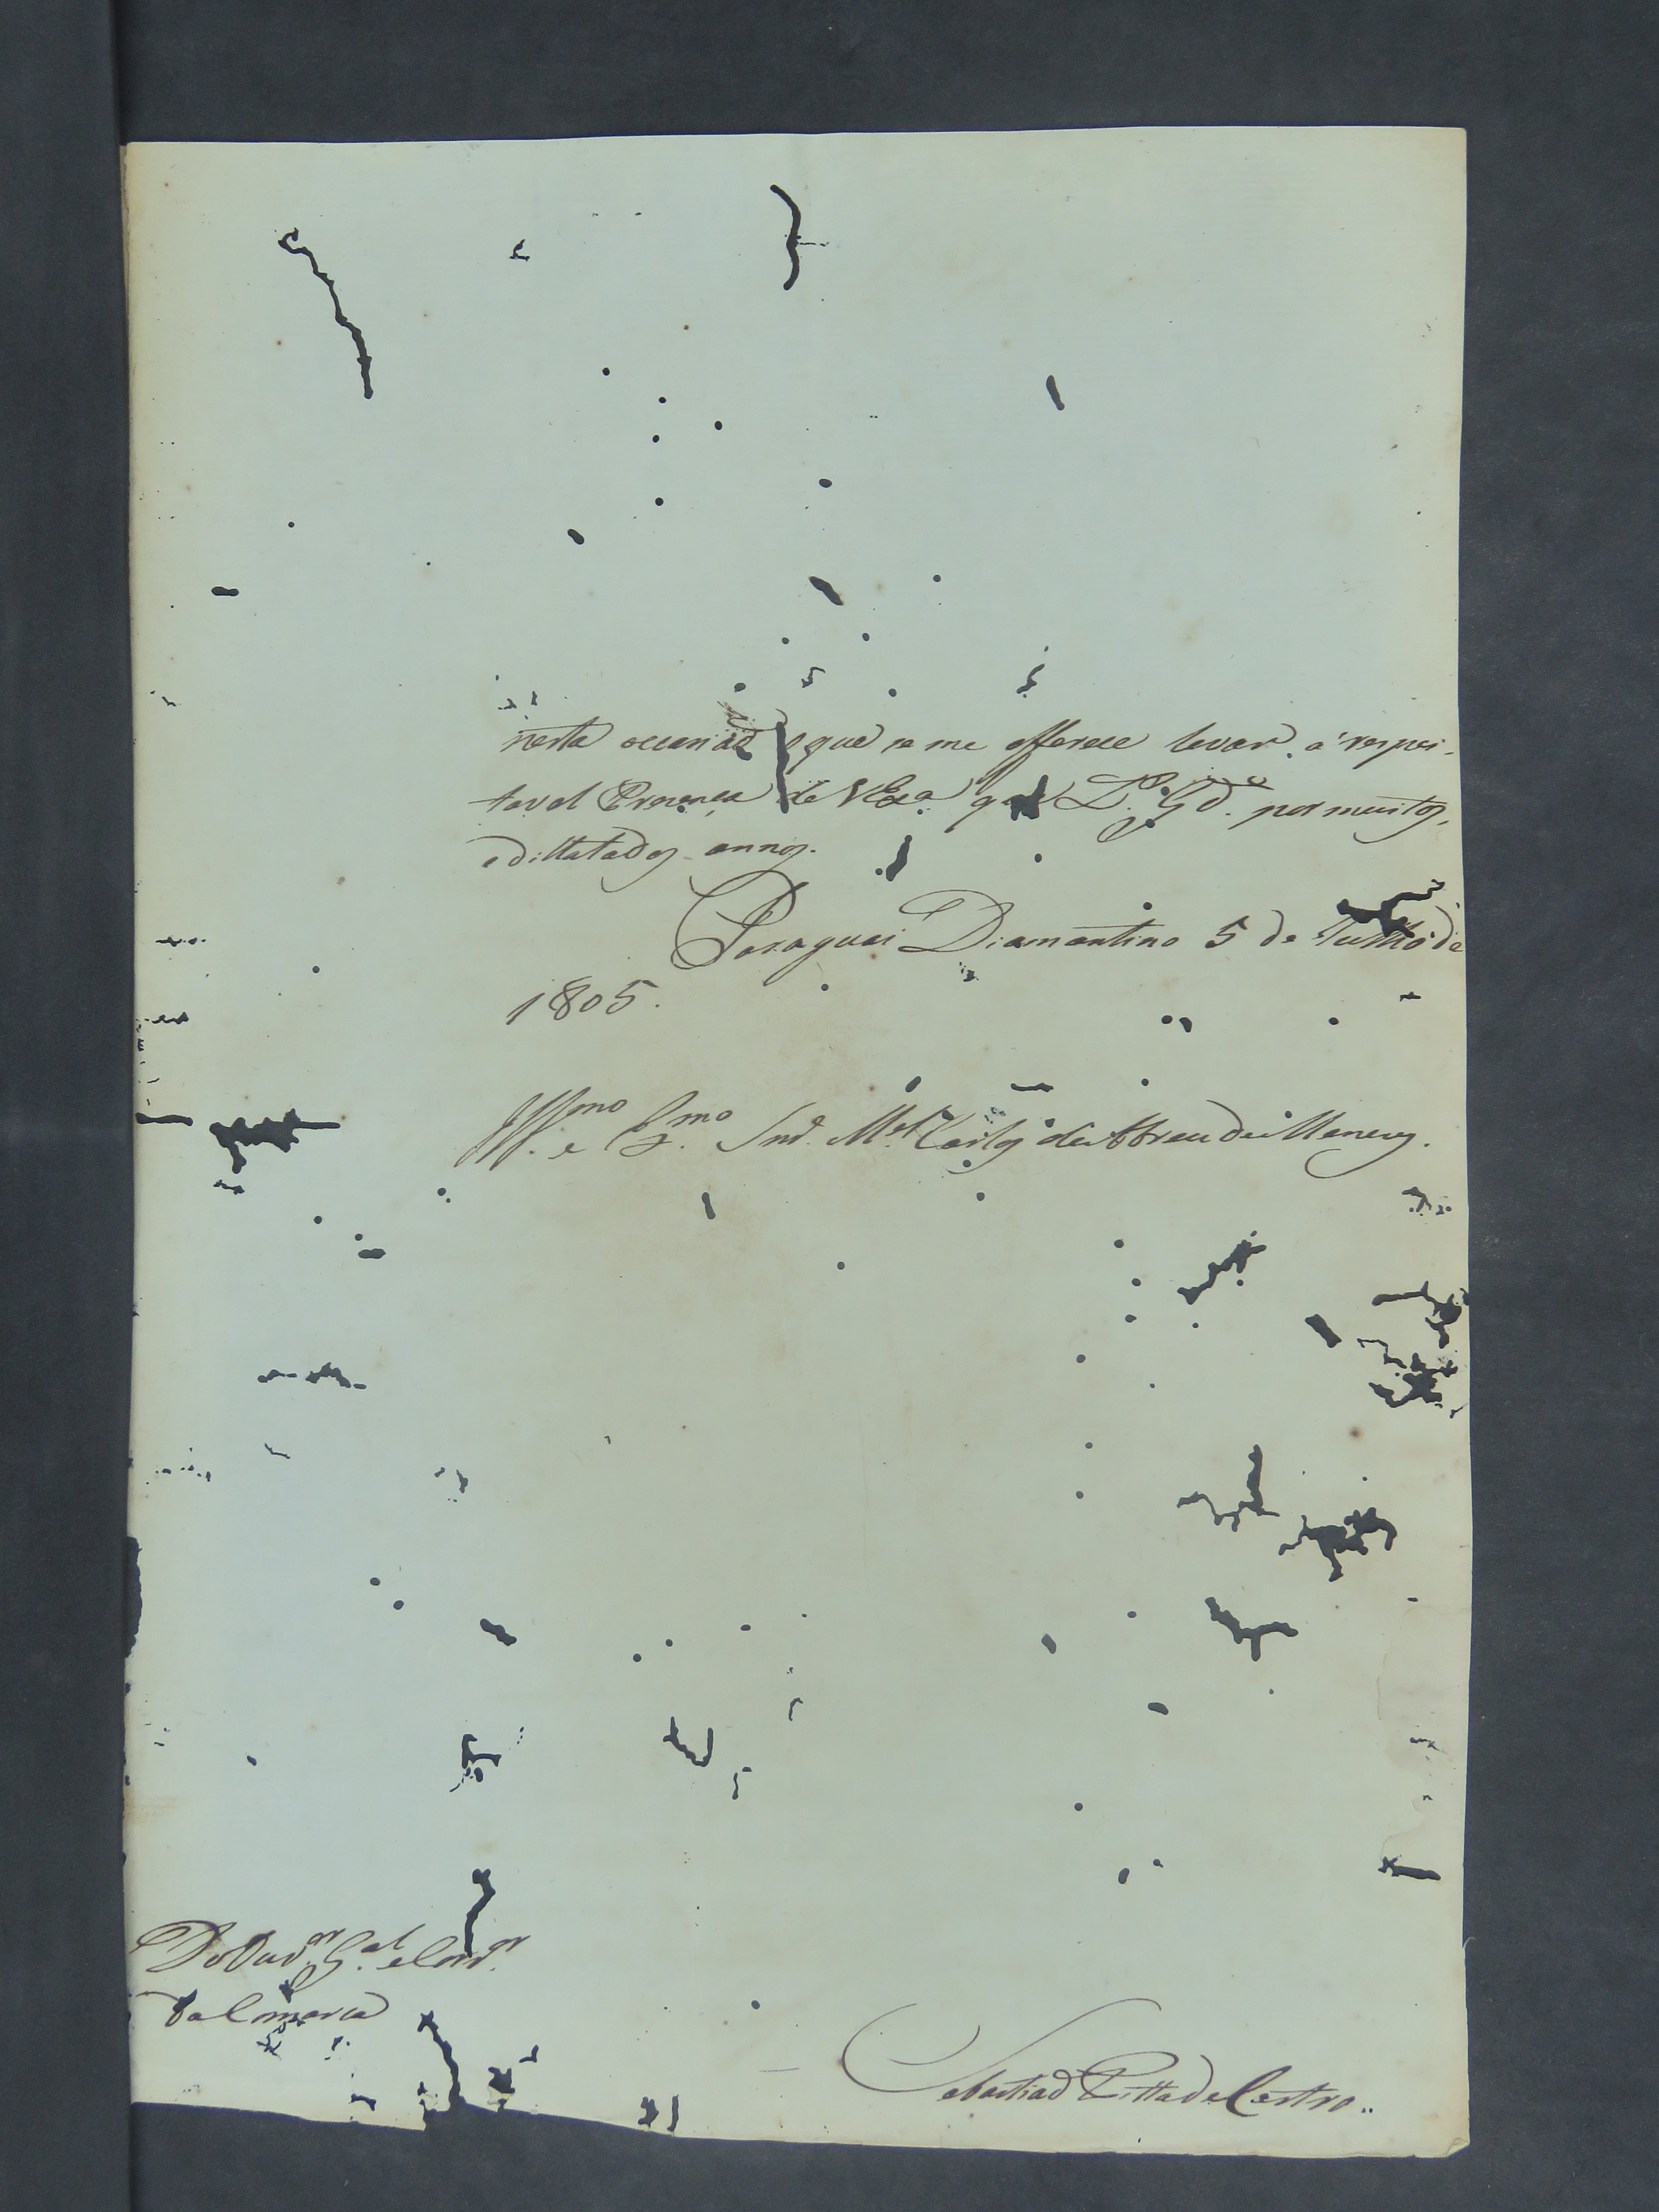 nesta occaziaõ o que se me offerece levar á respei-
tavel Prezença de VExa. que Ds. Gde. por muitos,
e dillatados annos.
Paraguai Diamantino 5 de Julho de
1805.
Illmo. e Exmo. Snr. Mel. Carlos de Abreu de Menezes.
Do Ouvor. Gal. e Corr.or
da Comarca
Sebastiaõ Pitta de Castro..